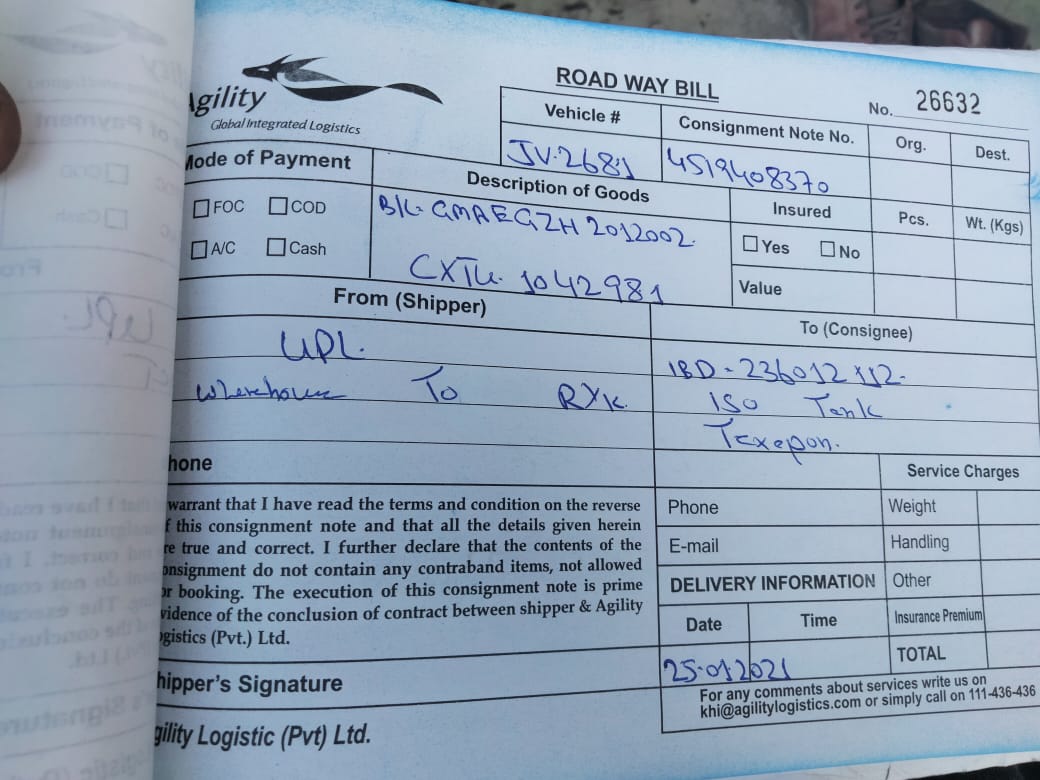 Agility
Global Integrated Logistics
ROAD WAY BILL
No. 26632
Vehicle #
Consignment Note No.
Org.
Dest.
JV-2681
4519408370
Mode of Payment
Description of Goods
Insured
Pcs.
Wt. (Kgs)
FOC
COD
A/C
Cash
B/L- GMAEGZH2012002
CXTU. 1042981
Yes
No
Value
From (Shipper)
To (Consignee)
UPL.
Warehouse To RYK
ISO Tank
hone
Service Charges
warrant that I have read the terms and condition on the reverse
f this consignment note and that all the details given herein
re true and correct. I further declare that the contents of the
onsignment do not contain any contraband items, not allowed
or booking. The execution of this consignment note is prime
vidence of the conclusion of contract between shipper & Agility
ogistics (Pvt.) Ltd.
Phone
Weight
E-mail
Handling
DELIVERY INFORMATION
Other
Date
Time
Insurance Premium
25-01-2021
TOTAL
hipper's Signature
For any comments about services write us on
khi@agilitylogistics.com or simply call on 111-436-436
gility Logistic (Pvt) Ltd.